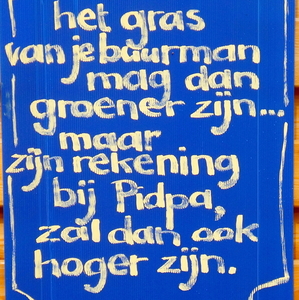 het gras
van je buurman
mag dan
groener zijn...
maar
zijn rekening
bij Pidpa,
zal dan ook
hoger zijn.